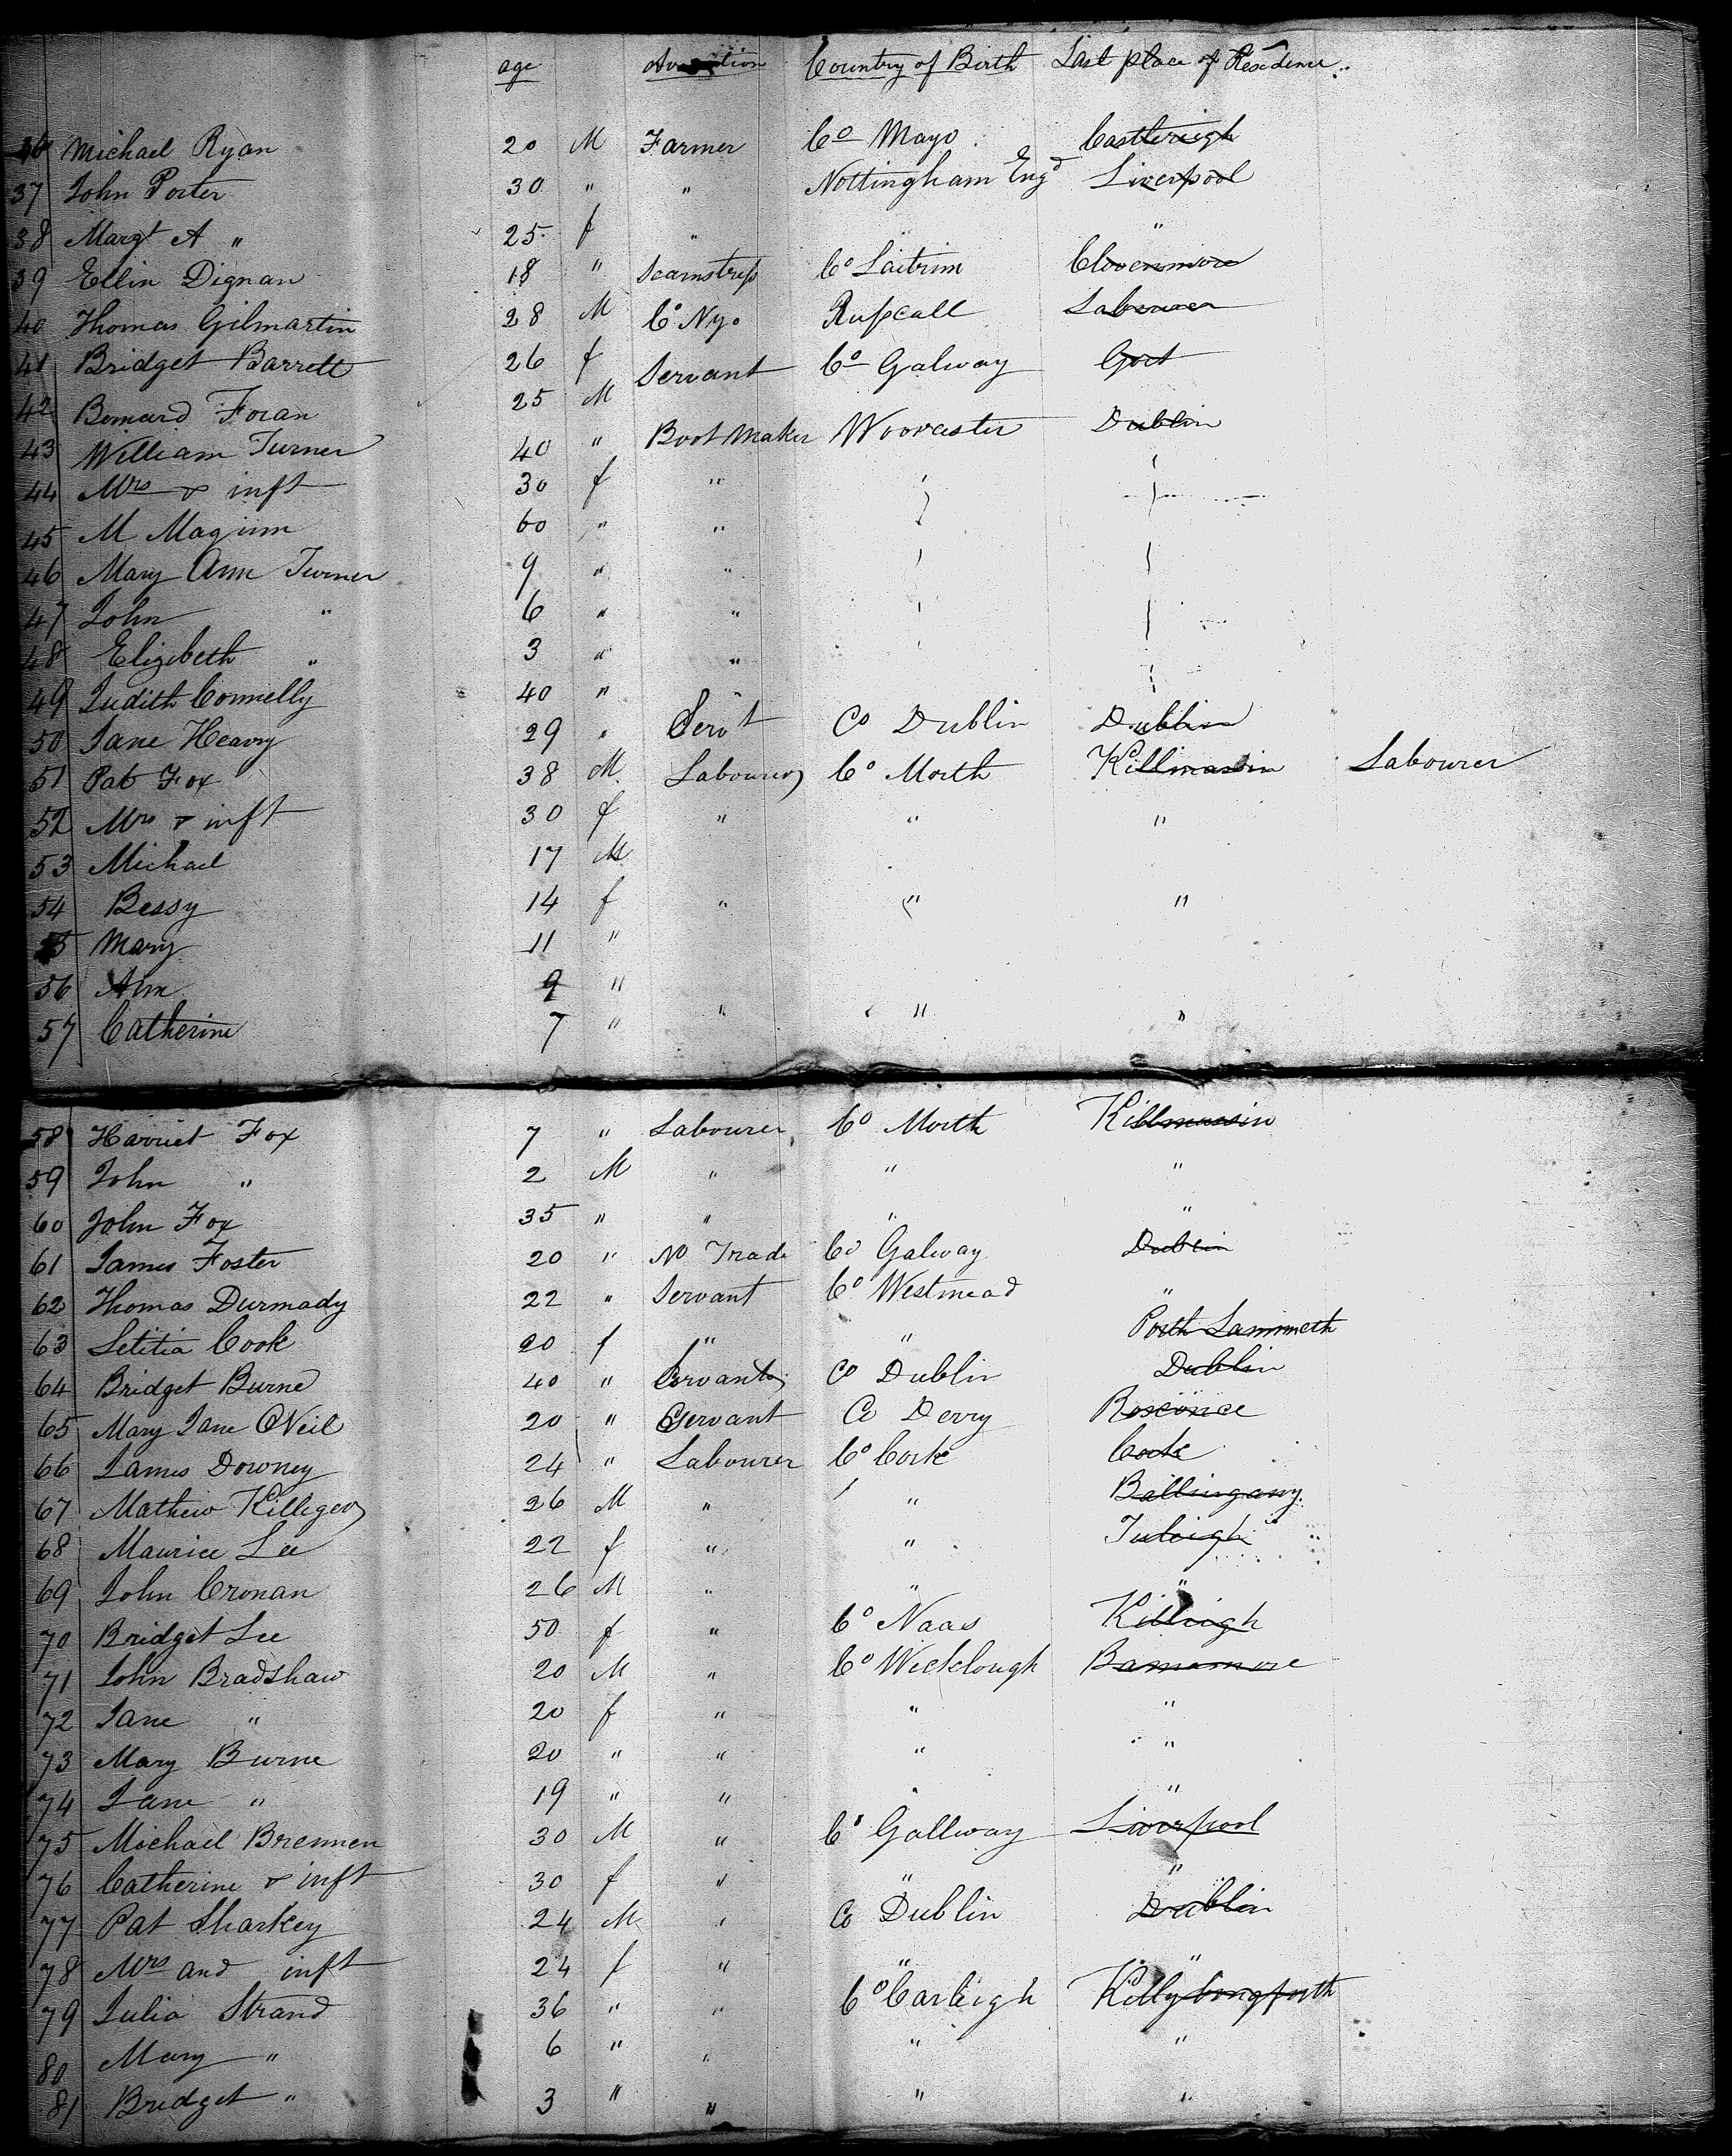 age Avocation Country of Birth Last place of Residence
36 Michael Ryan 20 M Farmer Co Mayo Castlereigh
37 John Porter 30 " " Nottingham Engd Liverpool
38 Margt A " 25 f " " "
39 Ellin Dignan 18 " Seamstress Co Laitrim Clovenmore
40 Thomas Gilmartin 28 M Co Nyo Russcall Labourer
41 Bridget Barrett 26 f Servant Co Galway Gort
42 Bernard Foran 25 M
43 William Turner 40 " Boot Maker Woorcaster Dublin
44 Mrs & inft 30 f "
45 M Maginn 60 " "
46 Mary Ann Turner 9 " "
47 John " 6 " "
48 Elizibeth " 3 " "
49 Judith Connelly 40 " "
50 Jane Heavy 29 " Servt Co Dublin Dublin
51 Pat Fox 38 M Labourer Co Morth Killmassin Labourer
52 Mrs & inft 30 f " " "
53 Michael 17 M
54 Bessy 14 f " " "
55 Mary 11 "
56 Ann 9 "
57 Catherine 7 " " " "
58 Harriet Fox 7 " Labourer Co Morth Killmassin
59 John " 2 M " " "
60 John Fox 35 " " " "
61 James Foster 20 " No Trade Co Galway Dublin
62 Thomas Durmady 22 " Servant Co Westmead "
63 Letitia Cook 20 f " " Porth Lammeth
64 Bridget Burne 40 " Servant Co Dublin Dublin
65 Mary Jane ONeil 20 " Servant Co Derry
66 James Downey 24 " Labourer Co Cork Cork
67 Mathew Killeger 26 M " " Ballingany
68 Maurice Lee 22 f " " Tuleigh
69 John Cronan 26 M " " "
70 Bridget Lee 50 f " Co Naas Killeigh
71 John Bradshaw 20 M " Co Wicklough Bamamore
72 Jane " 20 f " " "
73 Mary Burne 20 " " " "
74 Jane " 19 " " " "
75 Michael Brennen 30 M " Co Gallway Liverpool
76 Catherine & inft 30 f " " "
77 Pat Sharkey 24 M " Co Dublin Dublin
78 Mrs and inft 24 f " " "
79 Julia Strand 36 " " Co Carleigh
80 Mary " 6 " " " "
81 Bridget " 3 " " " "